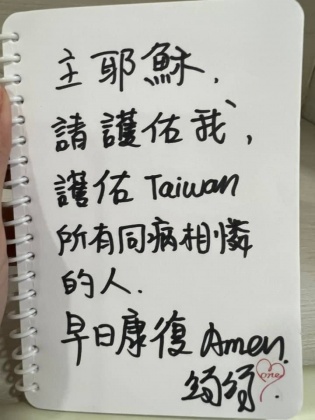 主耶穌,
請護佑我,
護佑 Taiwan
所有同病相憐
的人.
早日康復 Amen.